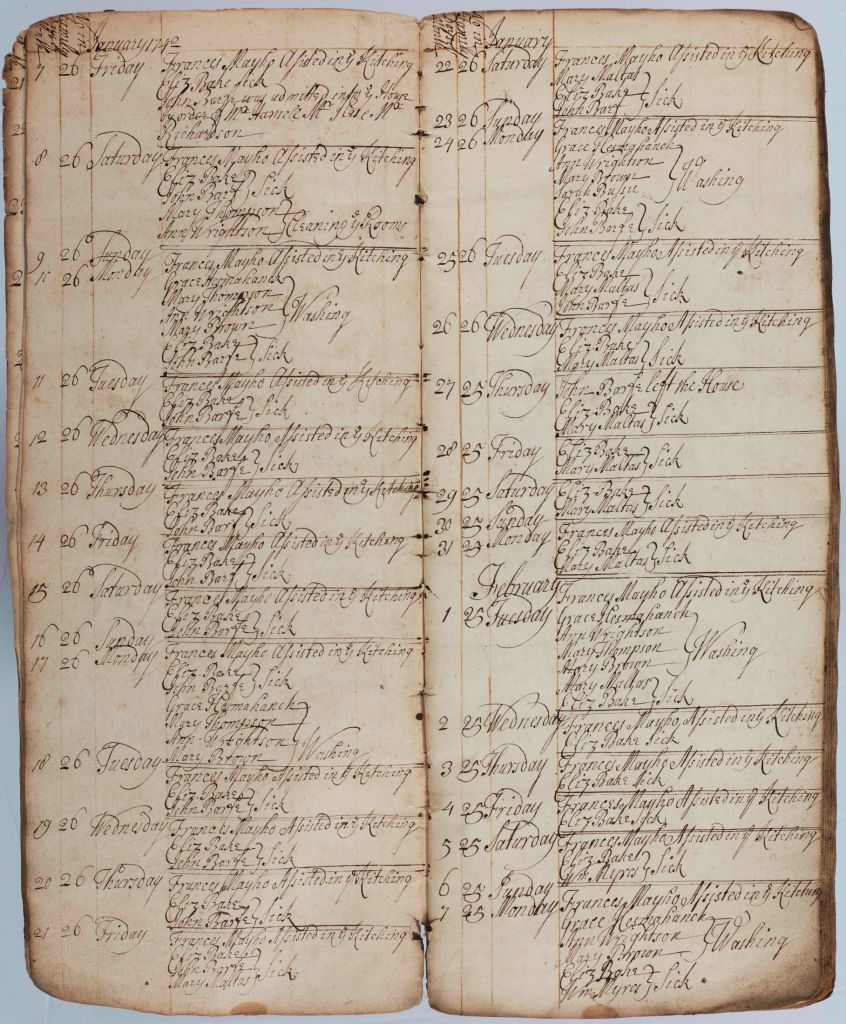 January 1742
7 26 Friday Frances Mayho Assisted in ye Ketching
Eliz Bake Sick
John Barfe was admitted into ye House
by order of Mr Mr Mr
Richardson
8 26 Saturday Frances Mayho Assisted in ye Ketching
Eliz Bake
John Barfe } Sick
Mary Thompson
Ann Wrightson } Cleaning ye Rooms
9 26 Sunday
10 26 Monday Frances Mayho Assisted in ye Ketching
Grace Hesmahanck
Mary Thompson
Ann Wrightson
Mary Brown } Washing
Eliz Bake
John Barfe } Sick
11 26 Tuesday Frances Mayho Assisted in ye Ketching
Eliz Bake
John Barfe } Sick
12 26 Wednesday Frances Mayho Assisted in ye Ketching
Eliz Bake
John Barfe } Sick
13 26 Thursday Frances Mayho Assisted in ye Ketching
Eliz Bake
John Barf } Sick
14 26 Friday Frances Mayho Assisted in ye Ketching
Eliz Bake
John Barf } Sick
15 26 Saturday Frances Mayho Assisted in ye Ketching
Eliz Bake
John Barfe } Sick
16 26 Sunday
17 26 Monday Frances Mayho Assisted in ye Ketching
Eliz Bake
John Barfe } Sick
Grace Hesmahanck
Mary Thompson
Ann Wrightson
Mary Brown } Washing
18 26 Tuesday Frances Mayho Assisted in ye Ketching
Eliz Bake
John Barfe } Sick
19 26 Wednesday Frances Mayho Assisted in ye Ketching
Eliz Bake
John Barfe } Sick
20 26 Thursday Frances Mayho Assisted in ye Ketching
Eliz Bake
John Barfe } Sick
21 26 Friday Frances Mayho Assisted in ye Ketching
Eliz Bake
Mary Maltas } Sick
January
22 26 Saturday Frances Mayho Assisted in ye Ketching
Mary Maltas
Eliz Bake
John Barf } Sick
23 26 Sunday
24 26 Monday Frances Mayho Assisted in ye Ketching
Grace Hesmahanck
Ann Wrightson
Mary Brown
Sarah } Washing
Eliz Bake
John Barfe } Sick
25 26 Tuesday Frances Mayho Assisted in ye Ketching
Eliz Bake
Mary Maltas
John Barfe } Sick
26 26 Wednesday Frances Mayho Assisted in ye Ketching
Eliz Bake
Mary Maltas } Sick
27 25 Thursday John Barfe left the House
Eliz Bake
Mary Maltas } Sick
28 25 Friday Eliz Bake
Mary Maltas } Sick
29 25 Saturday Eliz Bake
Mary Maltas } Sick
30 25 Sunday
31 25 Monday Frances Mayho Assisted in ye Ketching
Eliz Bake
Mary Maltas } Sick
February
1 25 Tuesday Frances Mayho Assisted in ye Ketching
Grace Hesmahanck
Ann Wrightson
Mary Thompson
Mary Brown } Washing
Mary Maltas
Eliz Bake } Sick
2 25 Wednesday Frances Mayho Assisted in ye Ketching
Eliz Bake Sick
3 25 Thursday Frances Mayho Assisted in ye Ketching
Eliz Bake Sick
4 25 Friday Frances Mayho Assisted in ye Ketching
Eliz Bake Sick
5 25 Saturday Frances Mayho Assisted in ye Ketching
Eliz Bake
Wm Myres } Sick
6 25 Sunday
7 25 Monday Frances Mayho Assisted in ye Ketching
Grace Hesmahanck
Ann Wrightson
Mary Brown } Washing
Eliz Bake
Wm Myres } Sick